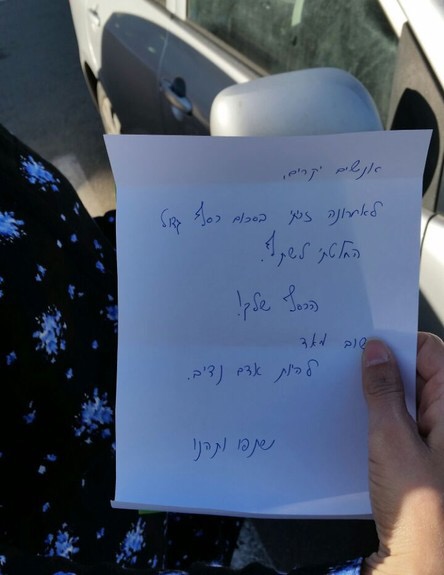 אנשים יקרים,
לאחרונה זכיתי בסכום כסף גדול
החלטתי לשתף.
הכסף שלך!
חשוב מאד
להיות אדם נדיב.
שתפו ותהנו